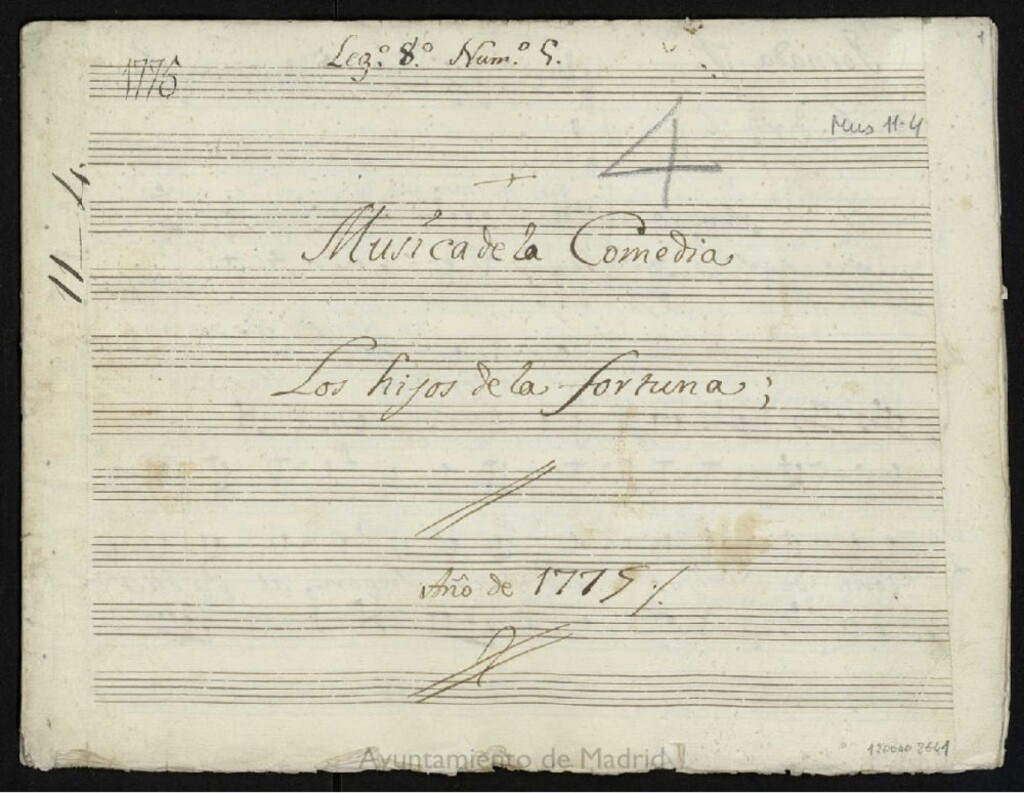 Leg.º 8.º Num.º 5.
1775
Mus 11-4
4
11-4
Musica de la Comedia
Los hijos de la fortuna;
Año de 1775
Ayuntamiento de Madrid